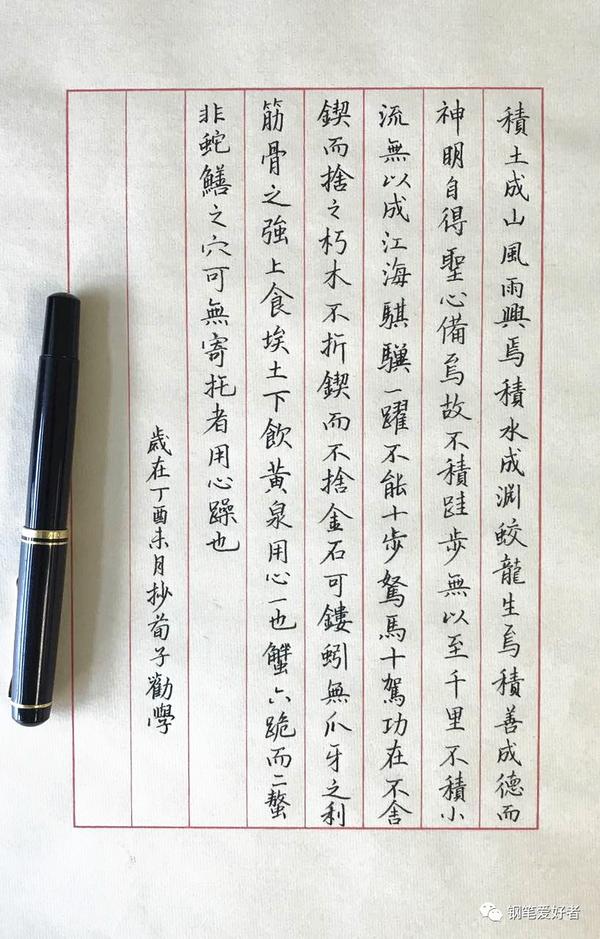 積土成山風雨興焉積水成淵蛟龍生焉積善成德而
神明自得聖心備焉故不積跬步無以至千里不積小
流無以成江海騏驥一躍不能十步駑馬十駕功在不舍
鍥而捨之朽木不折鍥而不捨金石可鏤蚓無爪牙之利
筋骨之強上食埃土下飲黃泉用心一也蟹六跪而二螯
非蛇鱔之穴可無寄托者用心躁也
歲在丁酉未月抄荀子勸學
钢笔爱好者